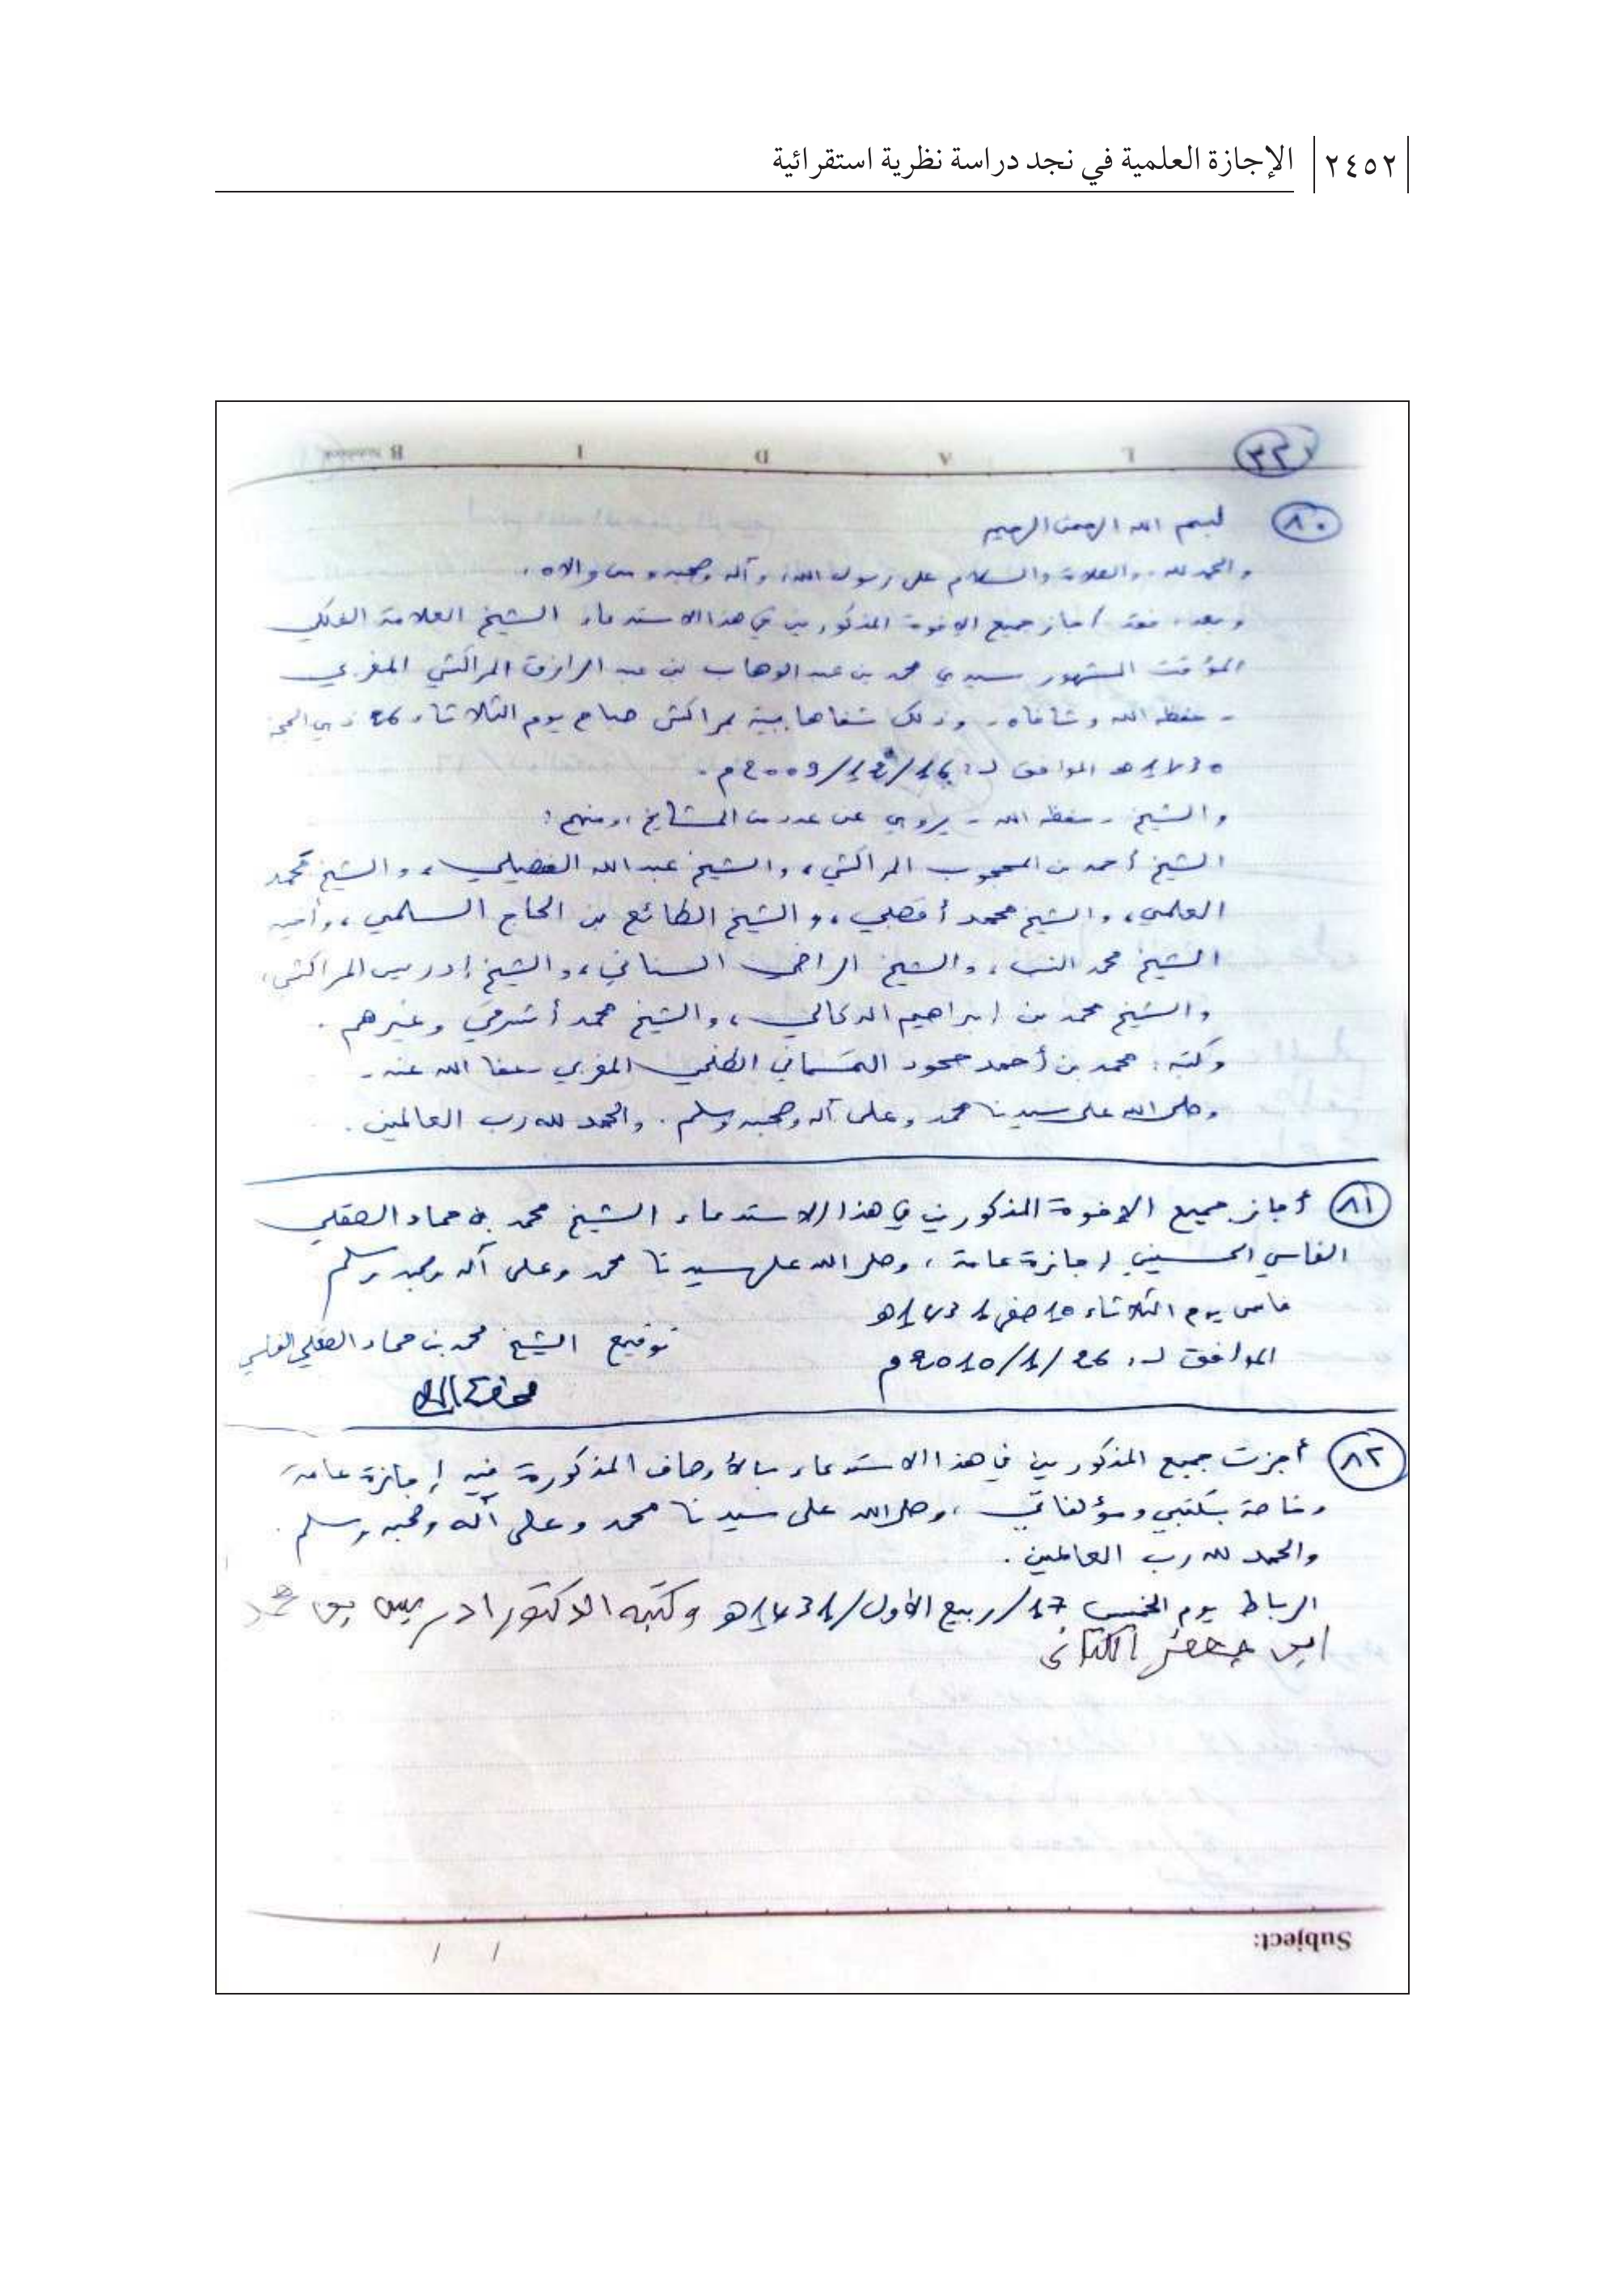 ٢٤٥٢ الإجازة العلمية في نجد دراسة نظرية استقرائية
٣٣
٨٠ بسم الله الرحمن الرحيم
والحمد لله، والصلاة والسلام على رسول الله، وآله وصحبه ومن والاه.
وبعد، فقد أجاز جميع الإخوة المذكورين في هذا الاستدعاء الشيخ العلامة الفلكي
المؤقت المشهور سيدي محمد بن عبد الوهاب بن عبد الرازق المراكشي المغربي
- حفظه الله وشافاه - وذلك شفاها ببيته بمراكش صباح يوم الثلاثاء 26 ذي الحجة
1430 هـ الموافق لـ: /12/2009م.
والشيخ - حفظه الله - يروي عن عدد من المشايخ، ومنهم:
الشيخ أحمد بن المحجوب المراكشي، والشيخ عبد الله الفضيلي، والشيخ محمد
العلمي، والشيخ محمد أقصبي، والشيخ الطائع بن الحاج السلمي، وأخيه
الشيخ محمد، والشيخ الراضي السناني، والشيخ إدريس المراكشي،
والشيخ محمد بن إبراهيم الدكالي، والشيخ محمد أشرقي وغيرهم.
وكتبه: محمد بن أحمد جحود التمسماني الطنجي المغربي - عفا الله عنه -
وصلى الله على سيدنا محمد وعلى آله وصحبه وسلم. والحمد لله رب العالمين.
٨١ أجاز جميع الإخوة المذكورين في هذا الاستدعاء الشيخ محمد بن حماد الصقلي
الفاسي الحسيني إجازة عامة، وصلى الله على سيدنا محمد وعلى آله وصحبه وسلم
فاس يوم الثلاثاء 10 صفر 1431هـ
الموافق لـ: 26/1/2010م
توقيع الشيخ محمد بن حماد الصقلي الفاسي
٨٢ أجزت جميع المذكورين في هذا الاستدعاء بالأوصاف المذكورة فيه إجازة عامة
وخاصة بكتبي ومؤلفاتي، وصلى الله على سيدنا محمد وعلى آله وصحبه وسلم.
والحمد لله رب العالمين.
الرباط يوم الخميس 17/ربيع الأول/1431هـ وكتبه الدكتور ادريس بن محمد
ابن جعفر الكتاني
Subject:
/ /